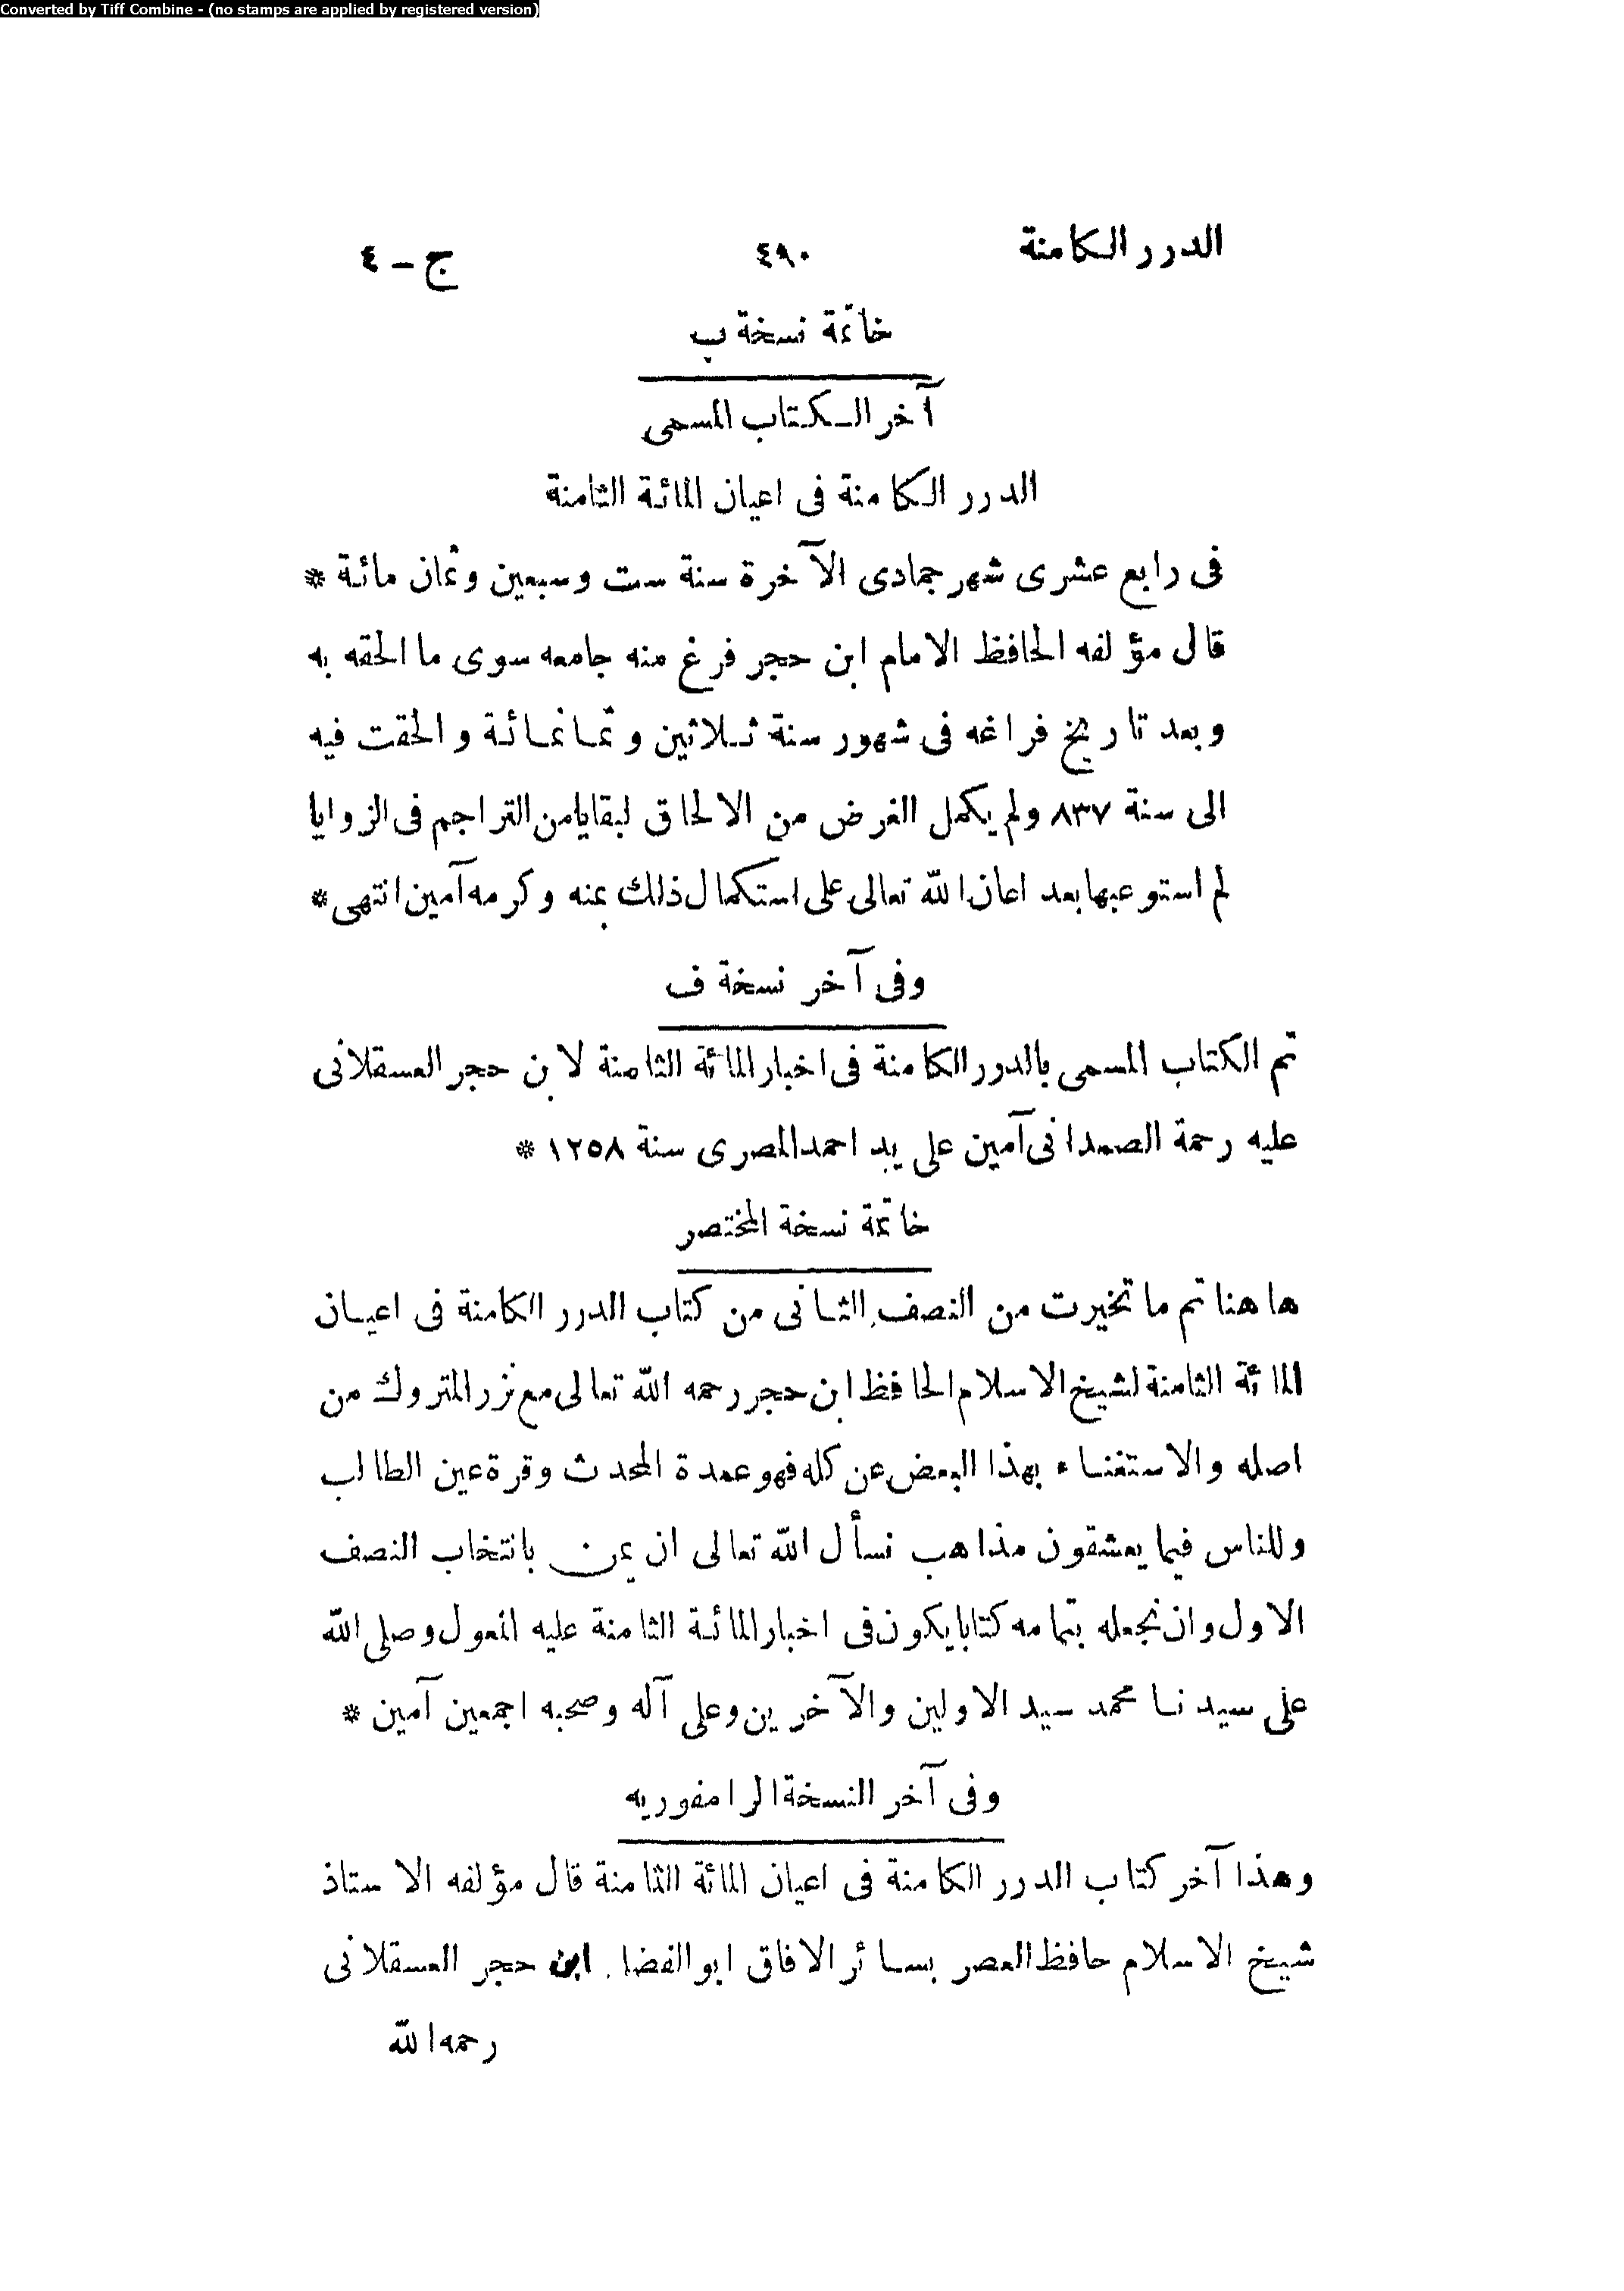 Converted by Tiff Combine - (no stamps are applied by registered version)
الدرر الكامنة ٤٩٠ ج - ٤
خاتمة نسخة ب
آخر الكتاب المسمى
الدرر الكامنة فى اعيان المائة الثامنة
فى رابع عشرى شهر جمادى الآخرة سنة ست وسبعين وثمان مائة *
قال مؤلفه الحافظ الامام ابن حجر فرغ منه جامعه سوى ما الحقه به
وبعد تاريخ فراغه فى شهور سنة ثلاثين وثمانمائة والحقت فيه
الى سنة ٨٣٧ ولم يكمل الغرض من الالحاق لبقايا من التراجم فى الزوايا
لم استوعبها بعد اعان الله تعالى على استكمال ذلك بمنه وكرمه آمين انتهى *
وفى آخر نسخة ف
تم الكتاب المسمى بالدرر الكامنة فى اخبار المائة الثامنة لابن حجر العسقلانى
عليه رحمة الصمدانى آمين على يد احمد المصرى سنة ١٢٥٨ *
خاتمة نسخة المختصر
ها هنا تم ما تخيرت من النصف الثانى من كتاب الدرر الكامنة فى اعيان
المائة الثامنة لشيخ الاسلام الحافظ ابن حجر رحمه الله تعالى مع نزر المتروك من
اصله والاستغناء بهذا البعض عن كله فهو عمدة المحدث وقرة عين الطالب
وللناس فيما يعشقون مذاهب نسأل الله تعالى ان يمن بانتخاب النصف
الاول وان نجعله بتمامه كتابا يكون فى اخبار المائة الثامنة عليه المعول وصلى الله
على سيدنا محمد سيد الاولين والآخرين وعلى آله وصحبه اجمعين آمين *
وفى آخر النسخة الرامفوريه
وهذا آخر كتاب الدرر الكامنة فى اعيان المائة الثامنة قال مؤلفه الاستاذ
شيخ الاسلام حافظ العصر بسائر الافاق ابو الفضا. ابن حجر العسقلانى
رحمه الله